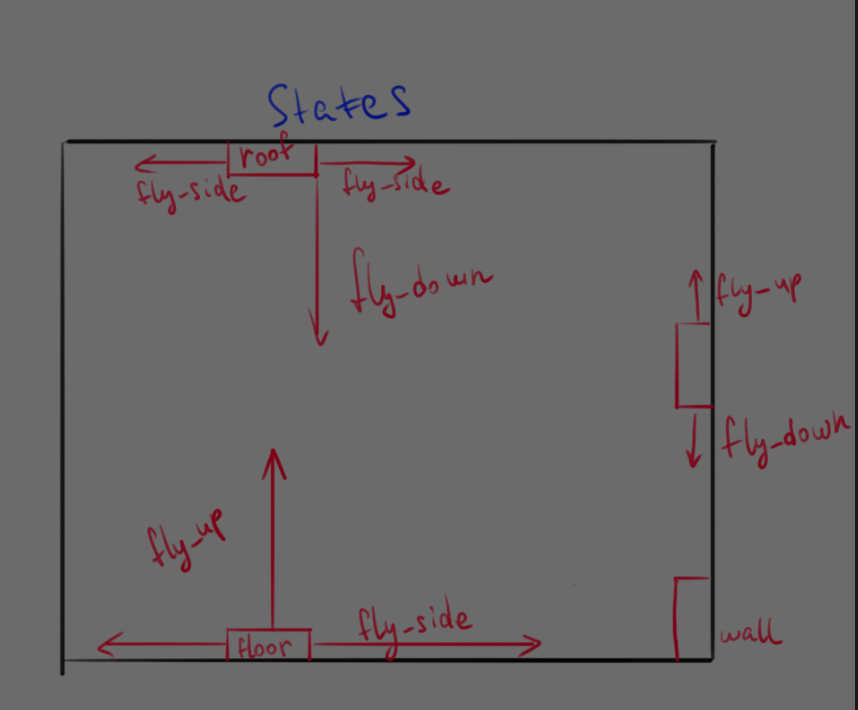 States
roof
fly-side
fly-side
fly-down
fly-up
fly-down
fly-up
fly-side
floor
wall